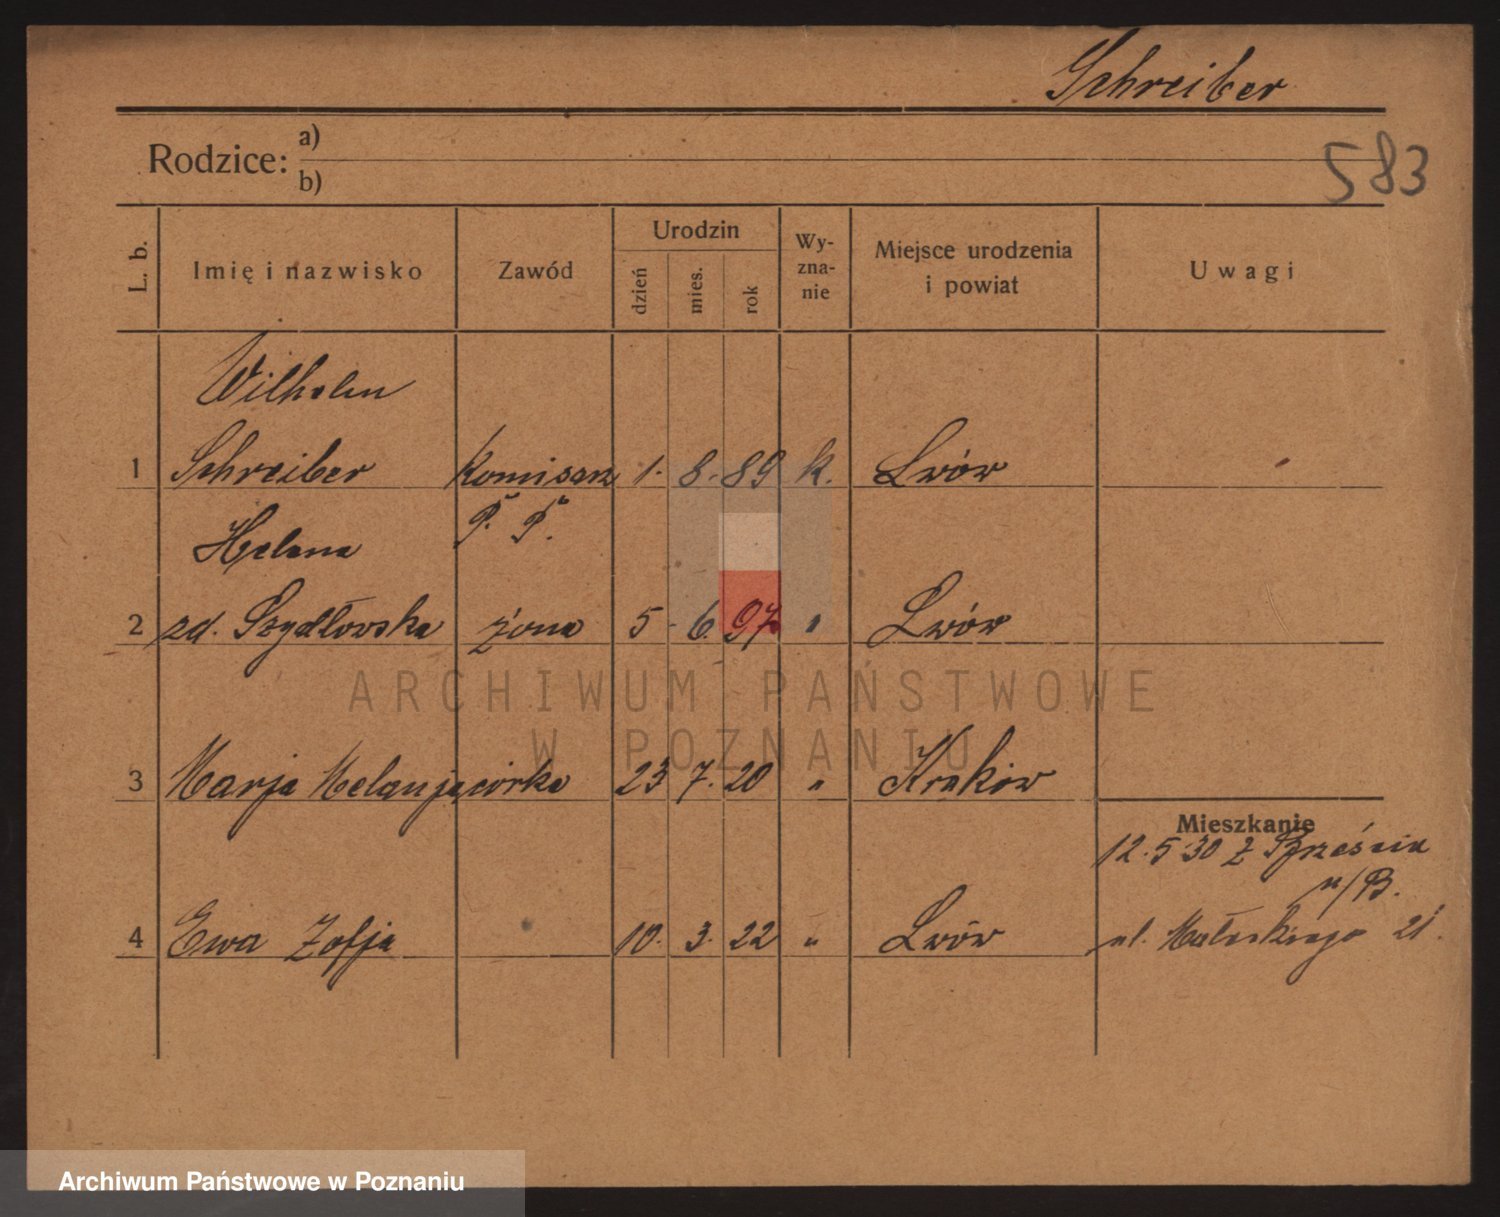 Schreiber
583
Rodzice: a)
b)
L. b.
Imię i nazwisko
Zawód
Urodzin
dzień
mies.
rok
Wy-
zna-
nie
Miejsce urodzenia
i powiat
Uwagi
Wilhelm
1 Schreiber Komisarz 1. 8. 89 k. Lwów
P. P.
Helena
2 zd. Szydłowska żona 5. 6. 97 " Lwów
3 Marja Melanja córka 23 7. 20 " Kraków
Mieszkanie
12.5.30 z Brześcia
n/B.
4 Ewa Zofja 10. 3. 22 " Lwów
ul. 21.
ARCHIWUM PAŃSTWOWE
W POZNANIU
Archiwum Państwowe w Poznaniu